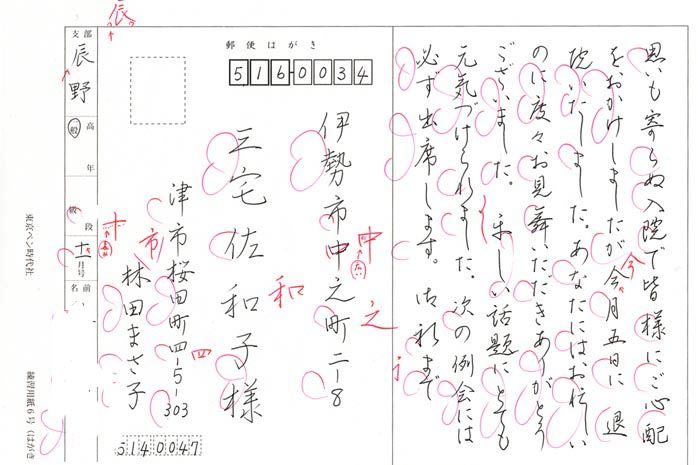 思いも寄らぬ入院で皆様にご心配
をおかけしましたが今月五日に退
院いたしました。あなたにはお忙しい
のに度々お見舞いただきありがとう
ございました。楽しい話題にとても
元気づけられました。次の例会には
必ず出席します。御礼まで
今
郵便はがき
516-0034
伊勢市中之町二-8
三宅佐和子様
津市桜田町四-5-303
林田まさ子
5140047
中
之
和
四
市
十
辰
支部
辰野
高
般
年
級
段
十一月号
名前
東京ペン時代社
練習用紙6号(はがき